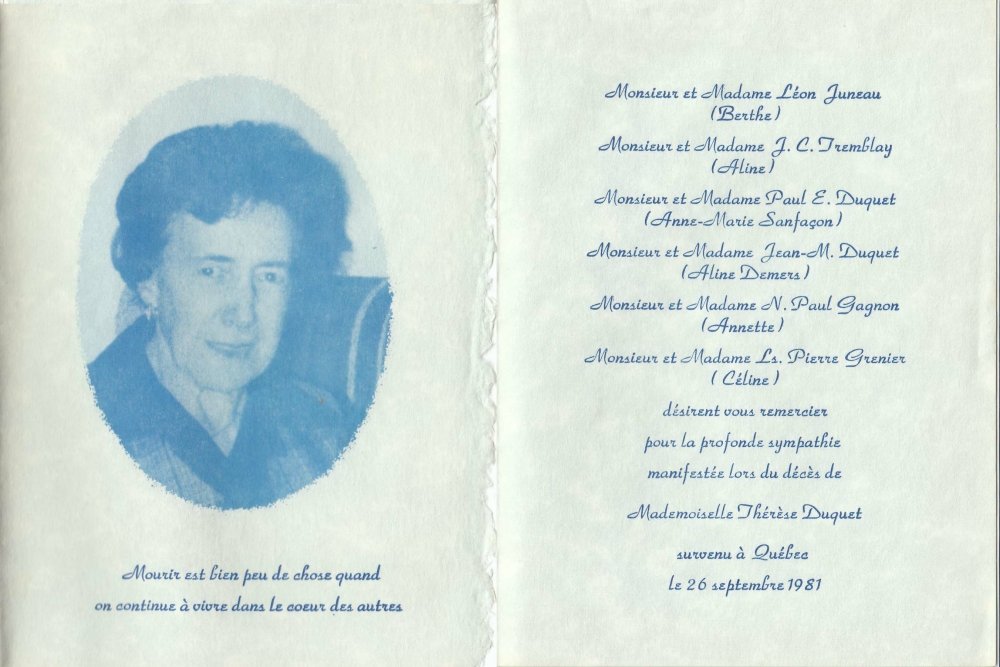 Mourir est bien peu de chose quand
on continue à vivre dans le coeur des autres
Monsieur et Madame Léon Juneau
(Berthe)
Monsieur et Madame J. C. Tremblay
(Aline)
Monsieur et Madame Paul E. Duquet
(Anne-Marie Sanfaçon)
Monsieur et Madame Jean-M. Duquet
(Aline Demers)
Monsieur et Madame N. Paul Gagnon
(Annette)
Monsieur et Madame Ls. Pierre Grenier
(Céline)
désirent vous remercier
pour la profonde sympathie
manifestée lors du décès de
Mademoiselle Thérèse Duquet
survenu à Québec
le 26 septembre 1981